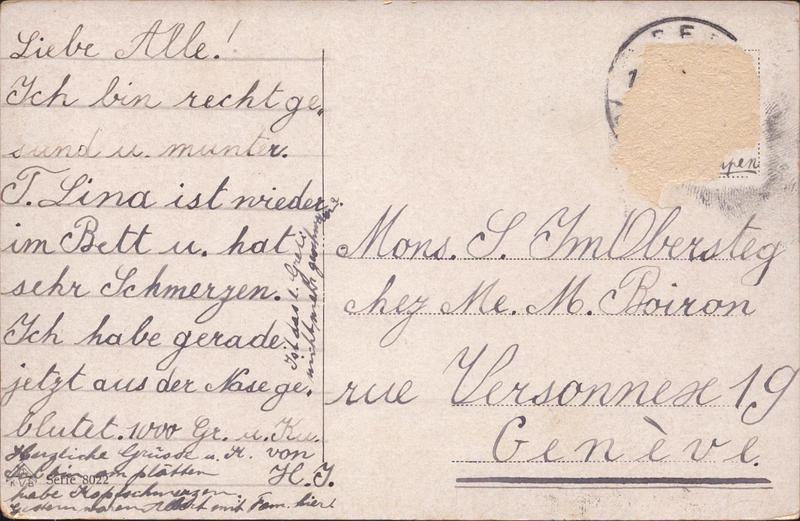 Liebe Alle!
Ich bin recht ge-
sund u. munter.
T. Lina ist wieder
im Bett u. hat
sehr Schmerzen.
Ich habe gerade
jetzt aus der Nase ge-
blutet. 1000 Gr. u. Ku.
von
H. I.
Herzliche Grüsse u. K.
bin am plätten
habe Kopfschmerzen.
Gestern waren mit Fam. hier!
Ist das l. Greti
nicht mehr
Serie 8022
Mons. S. ImObersteg
chez Me. M. Boiron
rue Versonnex 19
Genève.